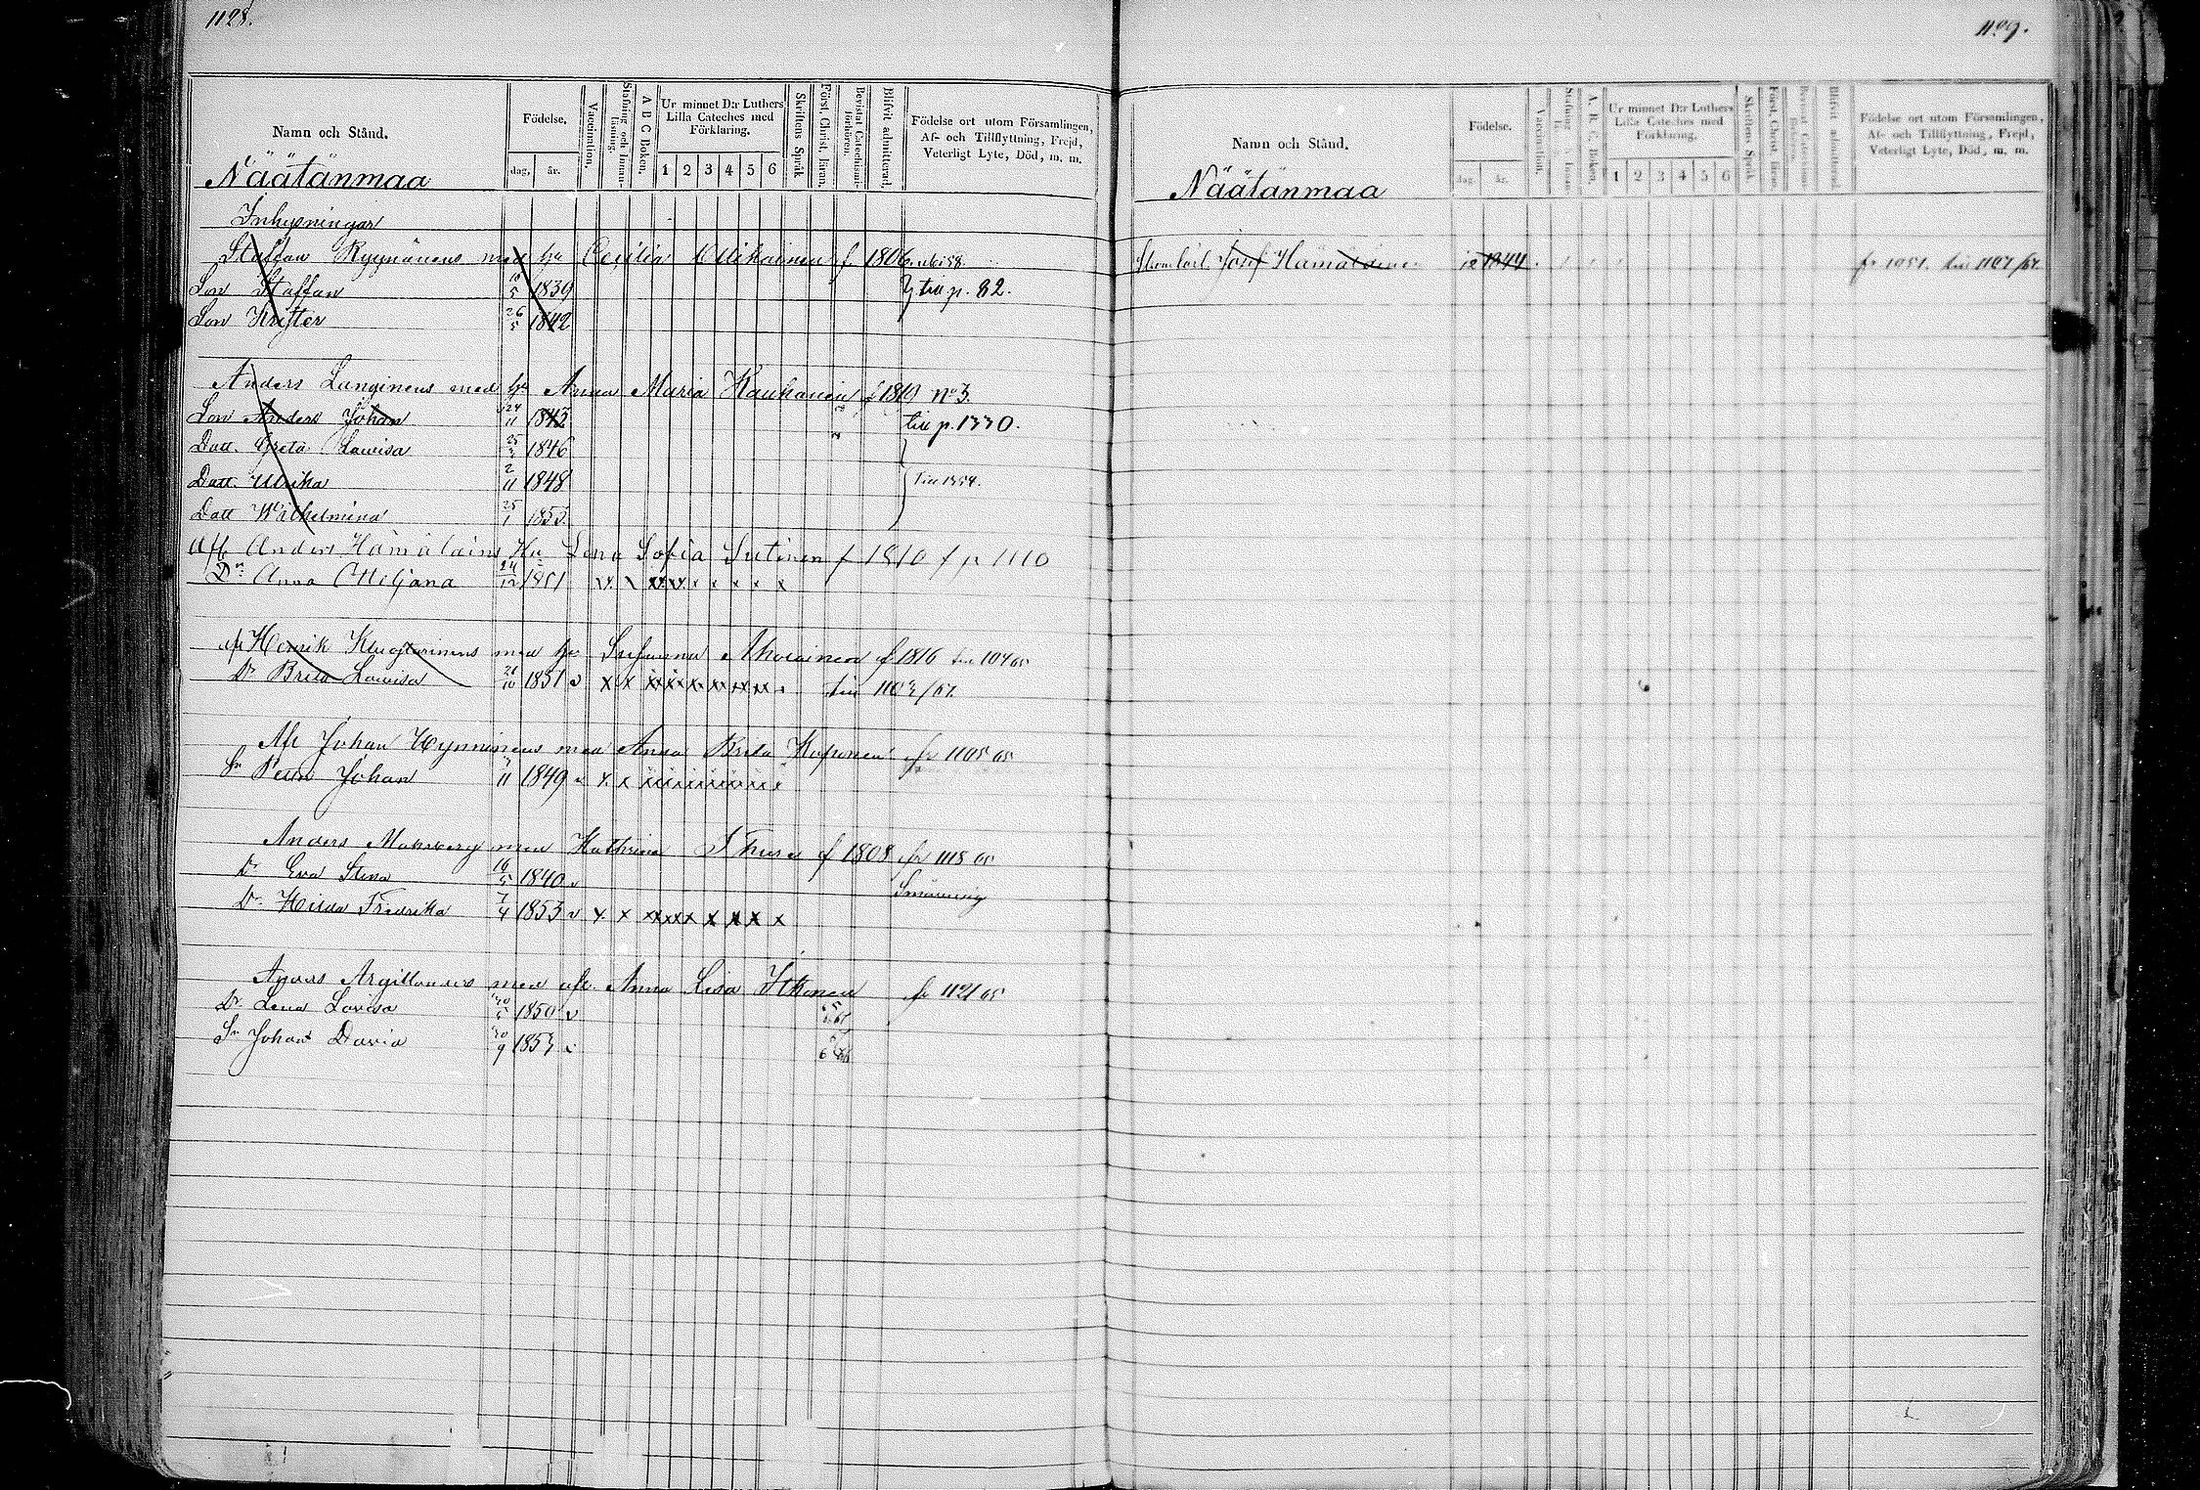 1128.
Namn och Stånd.
Födelse.
dag, år.
Vaccination.
Stafning och Innan-läsning.
A B C Boken.
Ur minnet D:r Luthers Lilla Cateches med Förklaring.
1 2 3 4 5 6
Skriftens Språk
Först. Christ. läran.
Bevistat Catechismi-förhören.
Blifvit admitterad.
Födelse ort utom Församlingen, Af- och Tillflyttning, Frejd, Veterligt Lyte, Död, m. m.
Näätänmaa
Inhysningar
Staffan Ryynänens med hu Cecilia Ollikainen f 1806
Son Staffan 10/5 1839 till p. 82.
Son Krister 26/5 1842
Anders Lunginens med hu Anna Maria Kauhanen f 1819 No 3.
Son Anders Johan 24/11 1843 till p. 1330.
Dott. Greta Lowisa 25 1846
Dott. Ulrika 2/11 1848 Till 1354.
Dott Wilhelmina 25/1 1853.
Afl Anders Hämäläins Hu Lena Sofia Sutinen f 1810 f p 1110
Dr Anna Ottiljana 24/12 1851 x x x x x x x x x
afl Henrik med hu Susanna f 1816 till
Dr Brita Lowisa 10 1851 v x x x x x x x x till 1107/67.
Afl Johan Hynninens med Anna Brita fr 1105 65
Sn Petter Johan 11 1849 v x x x x x x x x x
Anders med Kathrina f 1808 fr 1118 65
Dr Eva Stina 16/5 1840 v
Dr. Hilda Fredrika 7/4 1853 v x x x x x x x x
med afl. Anna Lisa Itkonen fr 1121 65
Dr Lena Lovisa 30/5 1850 v
Sn Johan David 30/9 1853
1129.
Namn och Stånd.
Födelse.
dag. år.
Vaccination.
Stafning och Innan-läsning.
A. B. C. Boken.
Ur minnet D:r Luthers Lilla Cateches med Förklaring.
1 2 3 4 5 6
Skriftens Språk
Först. Christ. läran.
Bevistat Catechismi-förhören.
Blifvit admitterad.
Födelse ort utom Församlingen, Af- och Tillflyttning, Frejd, Veterligt Lyte, Död, m. m.
Näätänmaa
Josef Hämäläinen 12 1844 fr 1051. till 1107/67.